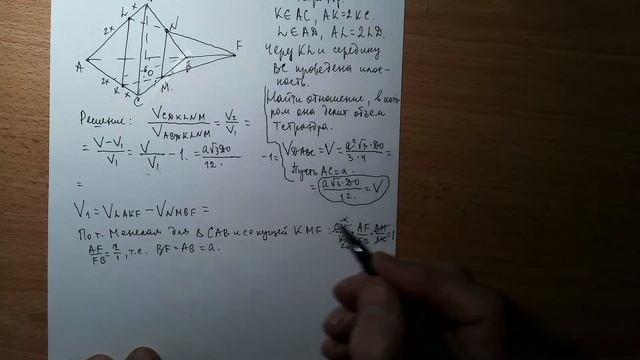 Тетраэдр.
K∈AC, AK=2KC.
L∈AD, AL=2LD.
Через KL и середину
BC проведена плос-
кость.
Найти отношение, в кото-
ром она делит объем
тетраэдра.
L
N
F
A
B
K
M
C
O
2x
x
2x
x
Решение: V_CDKLNM / V_ABDKLNM = V₂/V₁ =
= (V-V₁)/V₁ = V/V₁ - 1. = a√3·DO/12 · -1 =
=
V_DABC = V = a²√3·DO/(3·4) =
Пусть AC=a.
= a√3·DO/12 = V
V₁ = V_LAKF - V_NMBF =
По т. Менелая для Δ CAB и секущей KMF: AF/FB · =1,
AF/FB = 2/1, т.е. BF=AB=a.